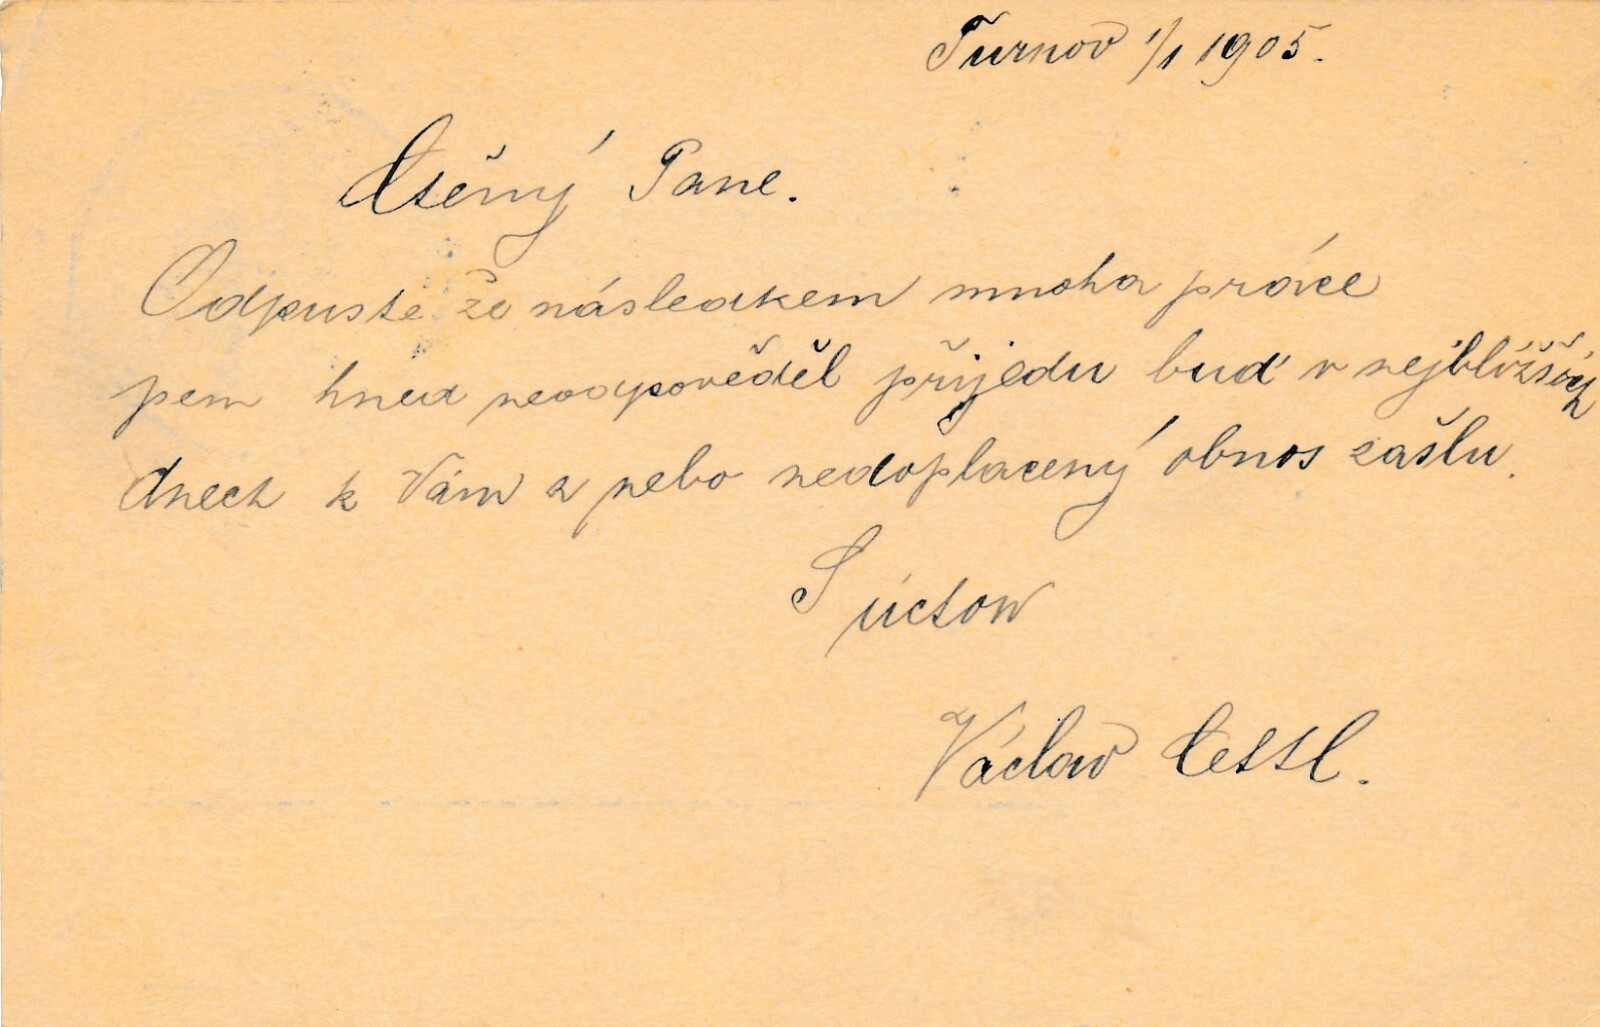 Turnov 1/1 1905.
Ctěný Pane.
Odpuste že následkem mnoha práce
jsem hned neodpověděl přijedu buď v nejbližších
dnech k Vám a nebo nedoplacený obnos zašlu.
S úctou
Václav Cettl.